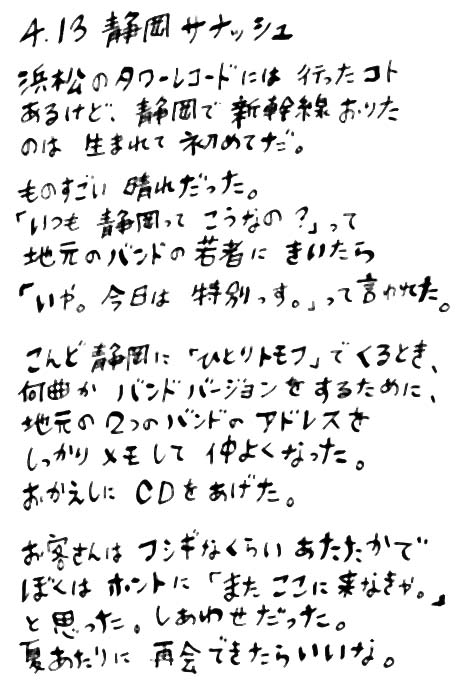 4.13 静岡 サナッシュ
浜松のタワーレコードには 行ったコト
あるけど、静岡で 新幹線 おりた
のは 生まれて 初めてだ。
ものすごい 晴れだった。
「いつも 静岡って こうなの?」って
地元の バンドの 若者に きいたら
「いや。今日は 特別っす。」って言われた。
こんど 静岡に 「ひとりトモフ」で くるとき、
何曲か バンドバージョン をするために、
地元の 2つの バンドの アドレスを
しっかり メモして 仲よくなった。
おかえしに CDをあげた。
お客さんは フシギなくらい あたたかで
ぼくは ホントに 「また ここに 来なきゃ。」
と 思った。しあわせだった。
夏あたりに 再会できたらいいな。